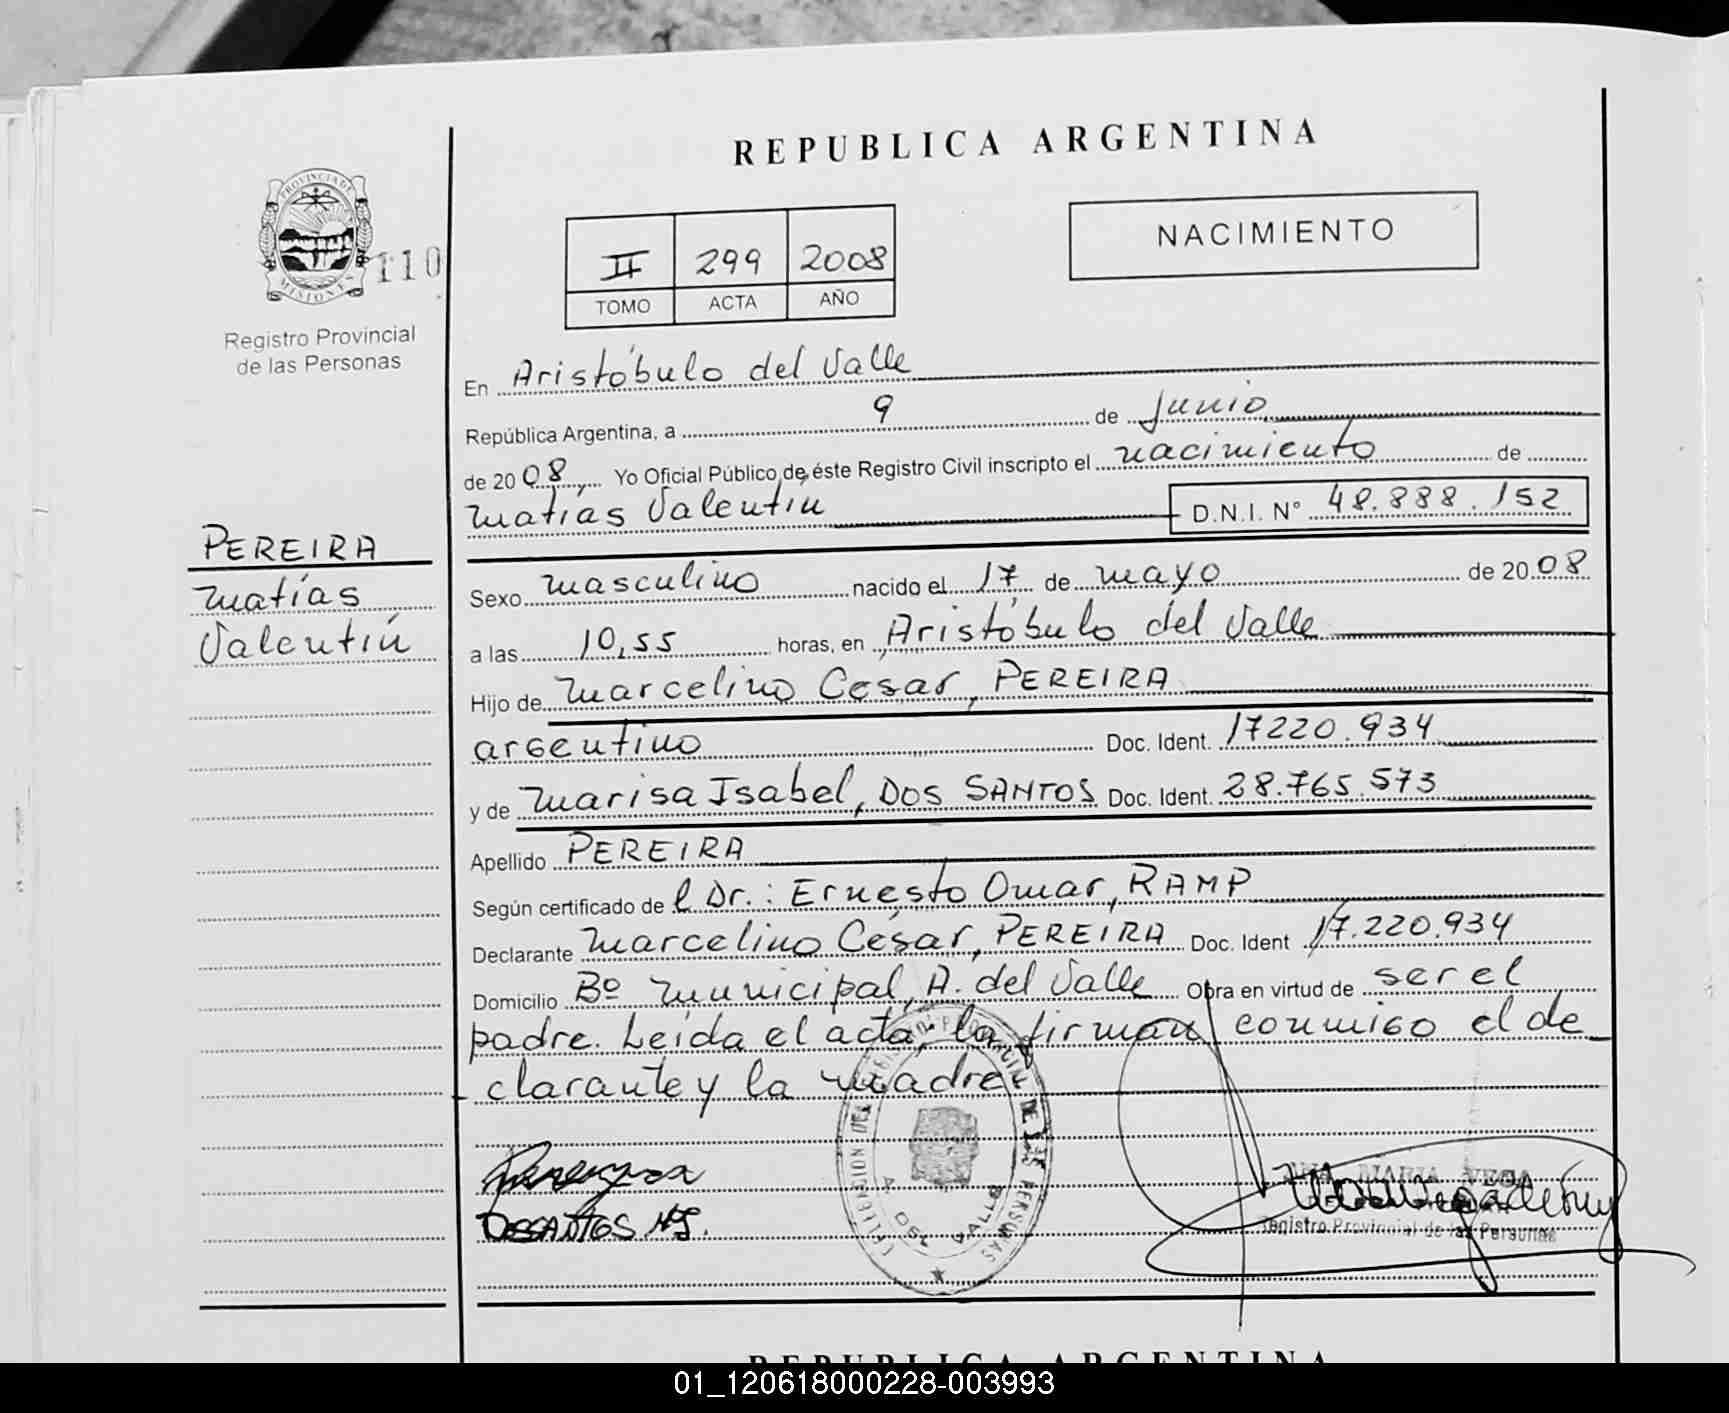 REPUBLICA ARGENTINA
PROVINCIA DE
MISIONES
110
Registro Provincial
de las Personas
II 299 2008
TOMO ACTA AÑO
NACIMIENTO
En Aristóbulo del Valle
República Argentina, a 9 de Junio
de 2008, Yo Oficial Público de éste Registro Civil inscripto el nacimiento de
Matías Valentín D.N.I. N° 48.888.152
PEREIRA
Matías
Valentín
Sexo masculino nacido el 17 de mayo de 2008
a las 10,55 horas, en Aristóbulo del Valle
Hijo de Marcelino Cesar, PEREIRA
argentino Doc. Ident. 17220.934
y de Marisa Isabel, DOS SANTOS Doc. Ident. 28.765.573
Apellido PEREIRA
Según certificado de l Dr.: Ernesto Omar, RAMP
Declarante Marcelino César, PEREIRA Doc. Ident 17.220.934
Domicilio Bº Municipal, A. del Valle Obra en virtud de ser el
padre. Leída el acta, la firman conmigo el de
clarante y la madre
DELEGACION DEL REGISTRO PROVINCIAL DE LAS PERSONAS
A. DEL VALLE
DOSSANTOS M.I.
MARIA VEGA
Registro Provincial de las Personas
REPUBLICA ARGENTINA
01_120618000228-003993